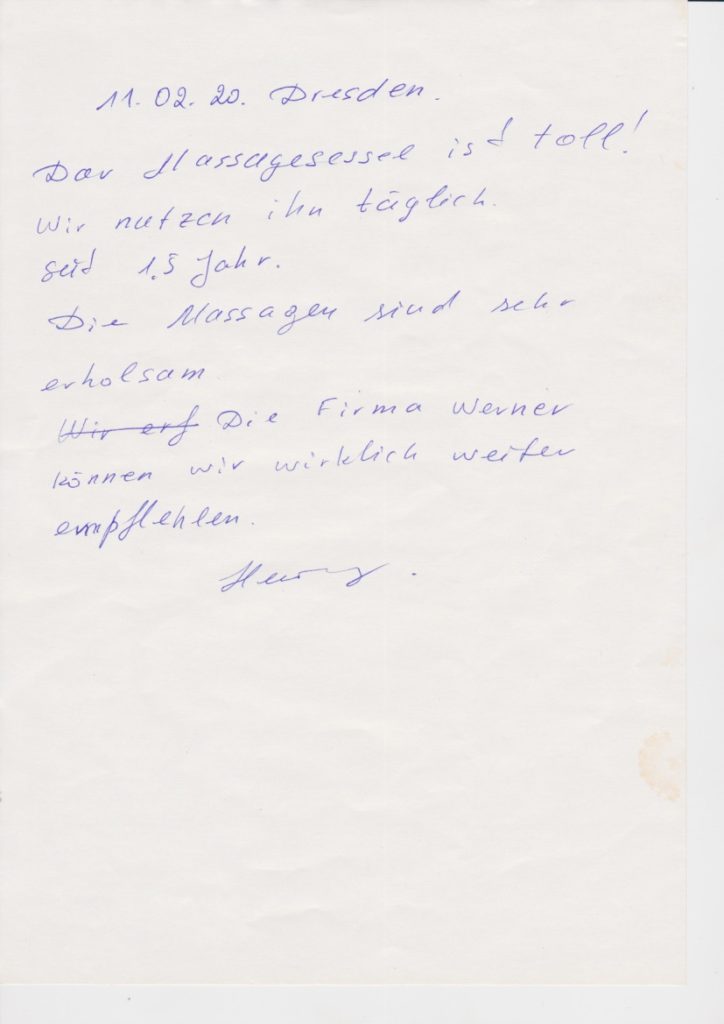 11.02.20. Dresden.
Der Massagesessel ist toll!
Wir nutzen ihn täglich.
seit 1,5 Jahr.
Die Massagen sind sehr
erholsam
Wir erf Die Firma Werner
können wir wirklich weiter
empflehlen.